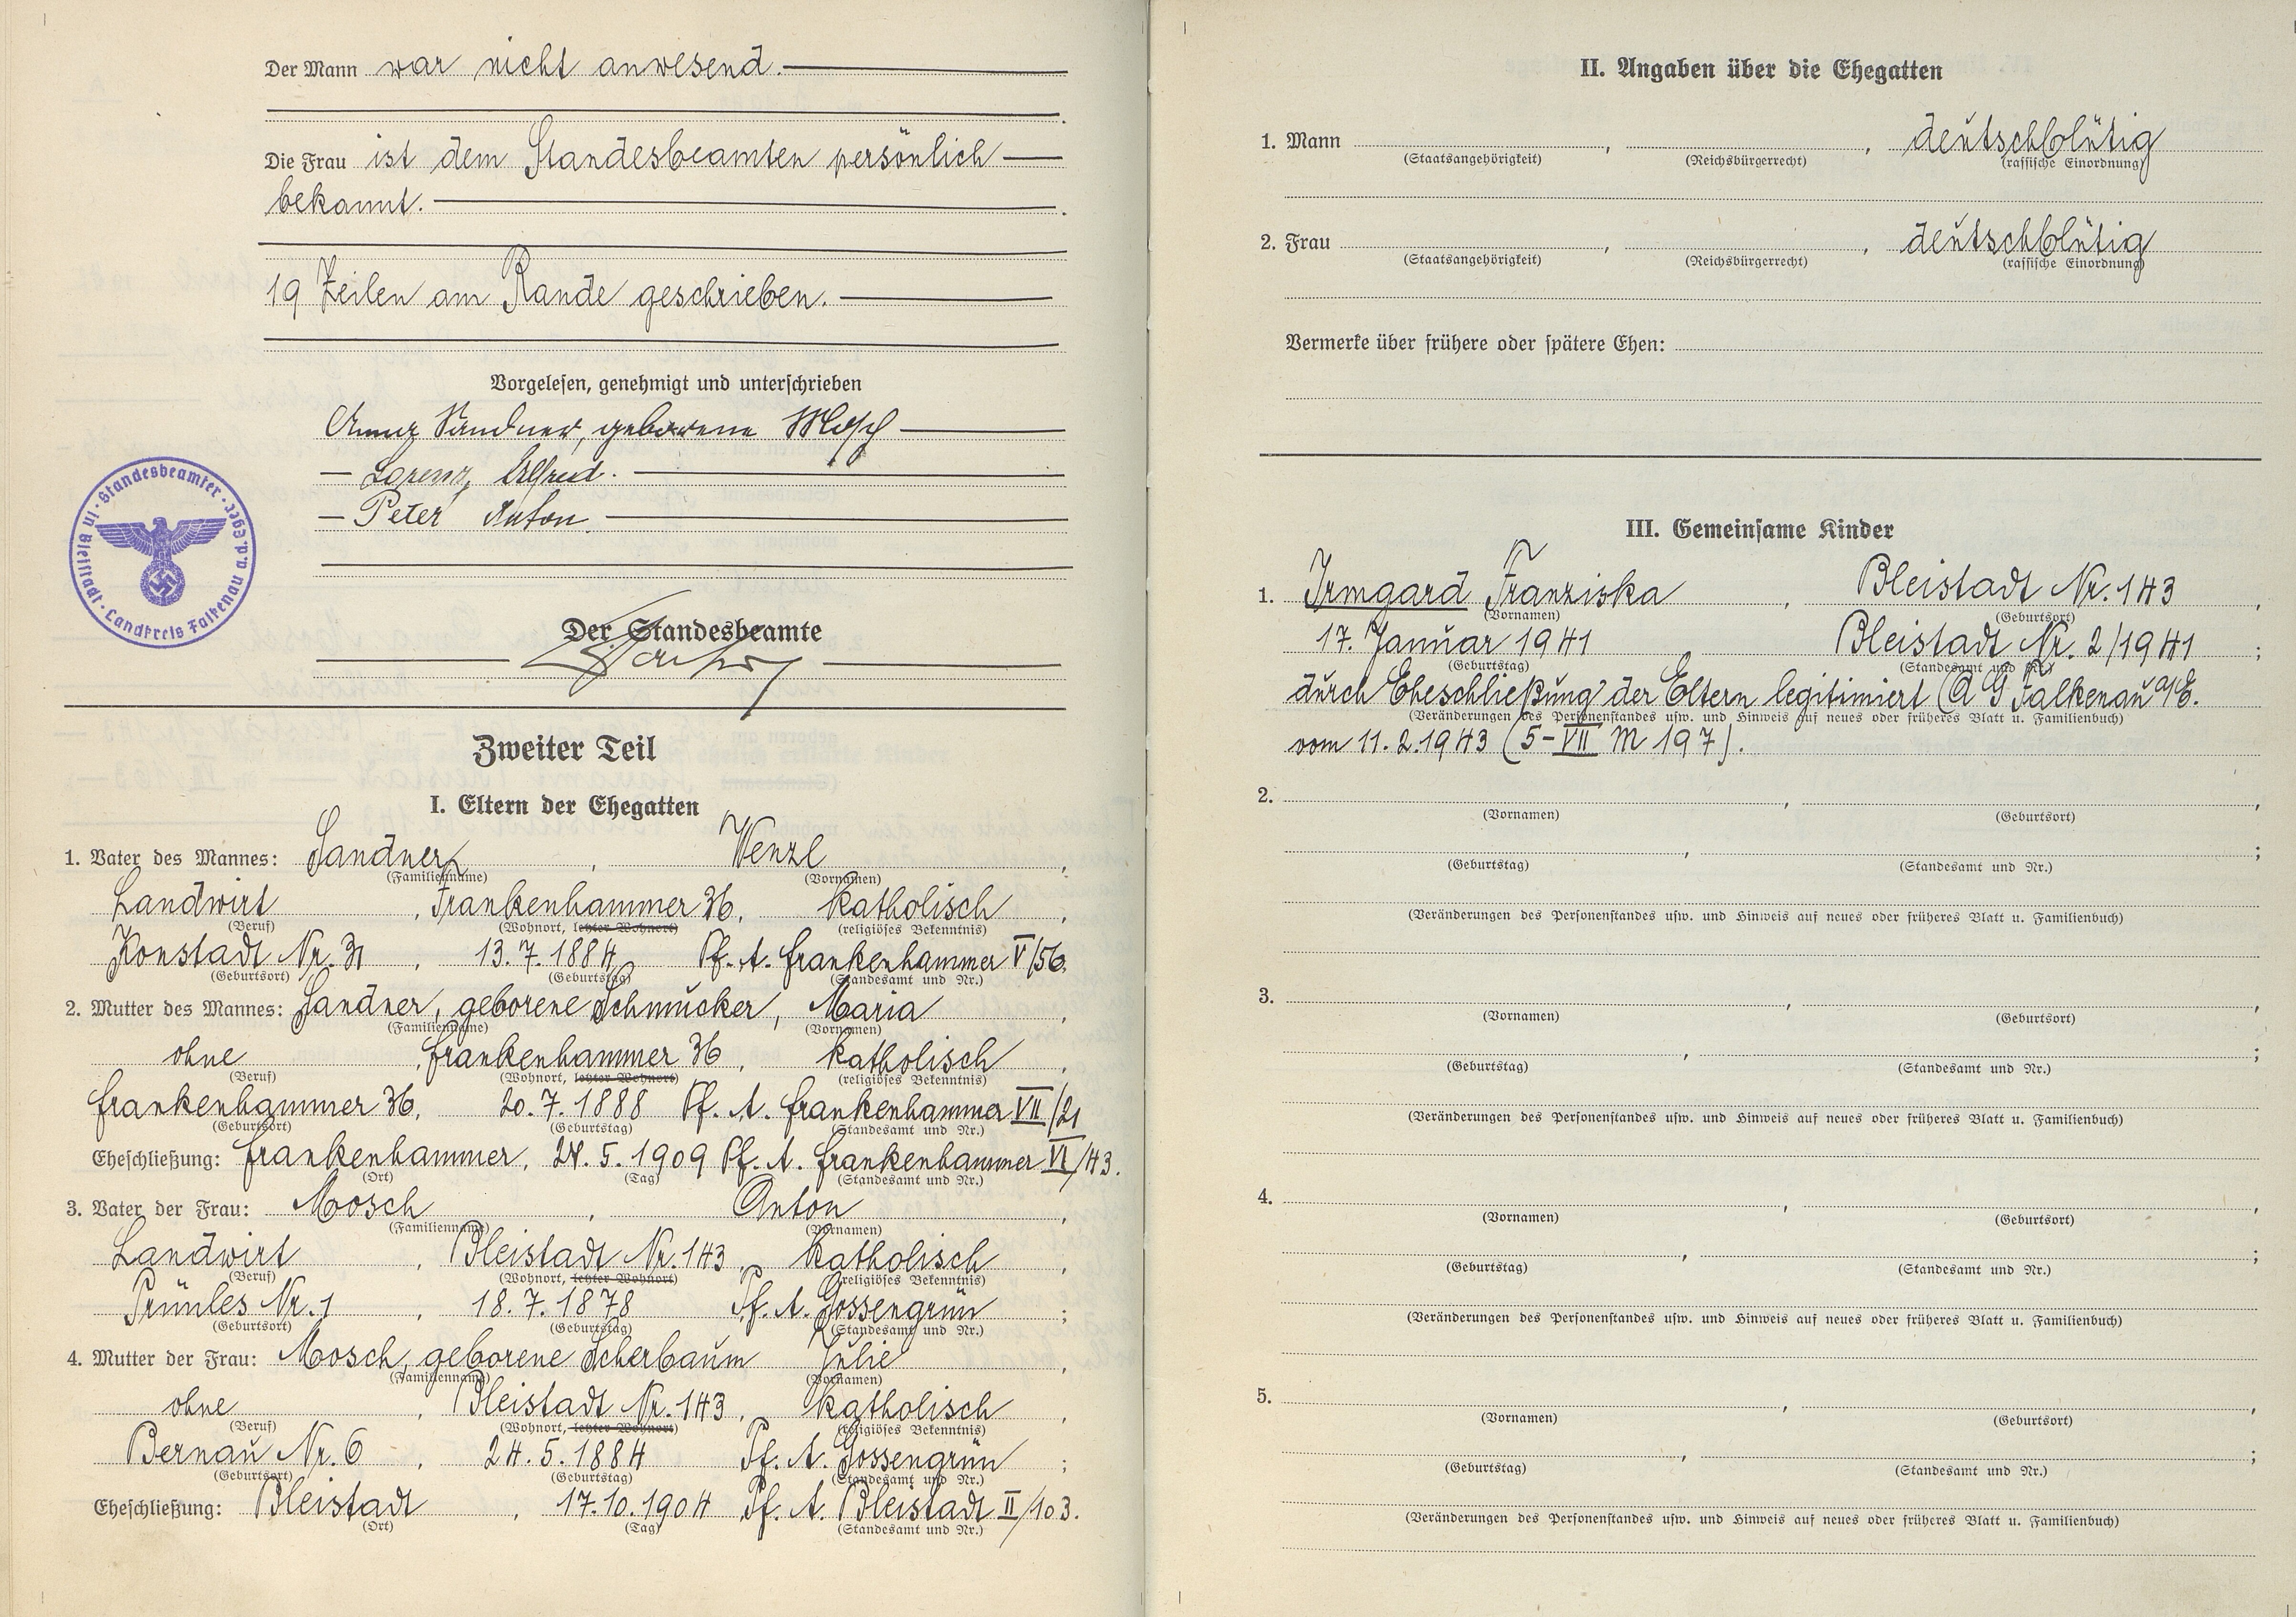 Der Mann war nicht anwesend.
Die Frau ist dem Standesbeamten persönlich
bekannt.
19 Zeilen am Rande geschrieben.
Vorgelesen, genehmigt und unterschrieben
Anna Sandner, geborene Mosch
Lorenz Alfred.
Peter Anton.
Standesbeamter in Bleistadt · Landkreis Falkenau a.d. Eger
Der Standesbeamte
Zweiter Teil
I. Eltern der Ehegatten
1. Vater des Mannes: Sandner, Wenzl,
(Familienname) (Vornamen)
Landwirt, Frankenhammer 36, katholisch,
(Beruf) (Wohnort, letzter Wohnort) (religiöses Bekenntnis)
Konstadt Nr. 31, 13.7.1884 Pf. A. Frankenhammer V/56.
(Geburtsort) (Geburtstag) (Standesamt und Nr.)
2. Mutter des Mannes: Sandner, geborene Schmucker, Maria,
(Familienname) (Vornamen)
ohne, Frankenhammer 36, katholisch,
(Beruf) (Wohnort, letzter Wohnort) (religiöses Bekenntnis)
Frankenhammer 36, 20.7.1888 Pf. A. Frankenhammer VII/21
(Geburtsort) (Geburtstag) (Standesamt und Nr.)
Eheschließung: Frankenhammer, 24.5.1909 Pf. A. Frankenhammer VI/43.
(Ort) (Tag) (Standesamt und Nr.)
3. Vater der Frau: Mosch, Anton,
(Familienname) (Vornamen)
Landwirt, Bleistadt Nr. 143, katholisch,
(Beruf) (Wohnort, letzter Wohnort) (religiöses Bekenntnis)
Prünles Nr. 1, 18.7.1878 Pf. A. Gossengrün;
(Geburtsort) (Geburtstag) (Standesamt und Nr.)
4. Mutter der Frau: Mosch, geborene Scherbaum Julie,
(Familienname) (Vornamen)
ohne, Bleistadt Nr. 143, katholisch,
(Beruf) (Wohnort, letzter Wohnort) (religiöses Bekenntnis)
Bernau Nr. 6, 24.5.1884 Pf. A. Gossengrün;
(Geburtsort) (Geburtstag) (Standesamt und Nr.)
Eheschließung: Bleistadt, 17.10.1904 Pf. A. Bleistadt II/103.
(Ort) (Tag) (Standesamt und Nr.)
II. Angaben über die Ehegatten
1. Mann , , deutschblütig
(Staatsangehörigkeit) (Reichsbürgerrecht) (rassische Einordnung)
2. Frau , , deutschblütig
(Staatsangehörigkeit) (Reichsbürgerrecht) (rassische Einordnung)
Vermerke über frühere oder spätere Ehen:
III. Gemeinsame Kinder
1. Irmgard Franziska, Bleistadt Nr. 143,
(Vornamen) (Geburtsort)
17. Januar 1941 Bleistadt Nr. 2/1941;
(Geburtstag) (Standesamt und Nr.)
durch Eheschließung der Eltern legitimiert (A G Falkenau a/E.
(Veränderungen des Personenstandes usw. und Hinweis auf neues oder früheres Blatt u. Familienbuch)
vom 11.2.1943 (5-VII M 197).
2. , ,
(Vornamen) (Geburtsort)
, ;
(Geburtstag) (Standesamt und Nr.)
(Veränderungen des Personenstandes usw. und Hinweis auf neues oder früheres Blatt u. Familienbuch)
3. , ,
(Vornamen) (Geburtsort)
, ;
(Geburtstag) (Standesamt und Nr.)
(Veränderungen des Personenstandes usw. und Hinweis auf neues oder früheres Blatt u. Familienbuch)
4. , ,
(Vornamen) (Geburtsort)
, ;
(Geburtstag) (Standesamt und Nr.)
(Veränderungen des Personenstandes usw. und Hinweis auf neues oder früheres Blatt u. Familienbuch)
5. , ,
(Vornamen) (Geburtsort)
, ;
(Geburtstag) (Standesamt und Nr.)
(Veränderungen des Personenstandes usw. und Hinweis auf neues oder früheres Blatt u. Familienbuch)